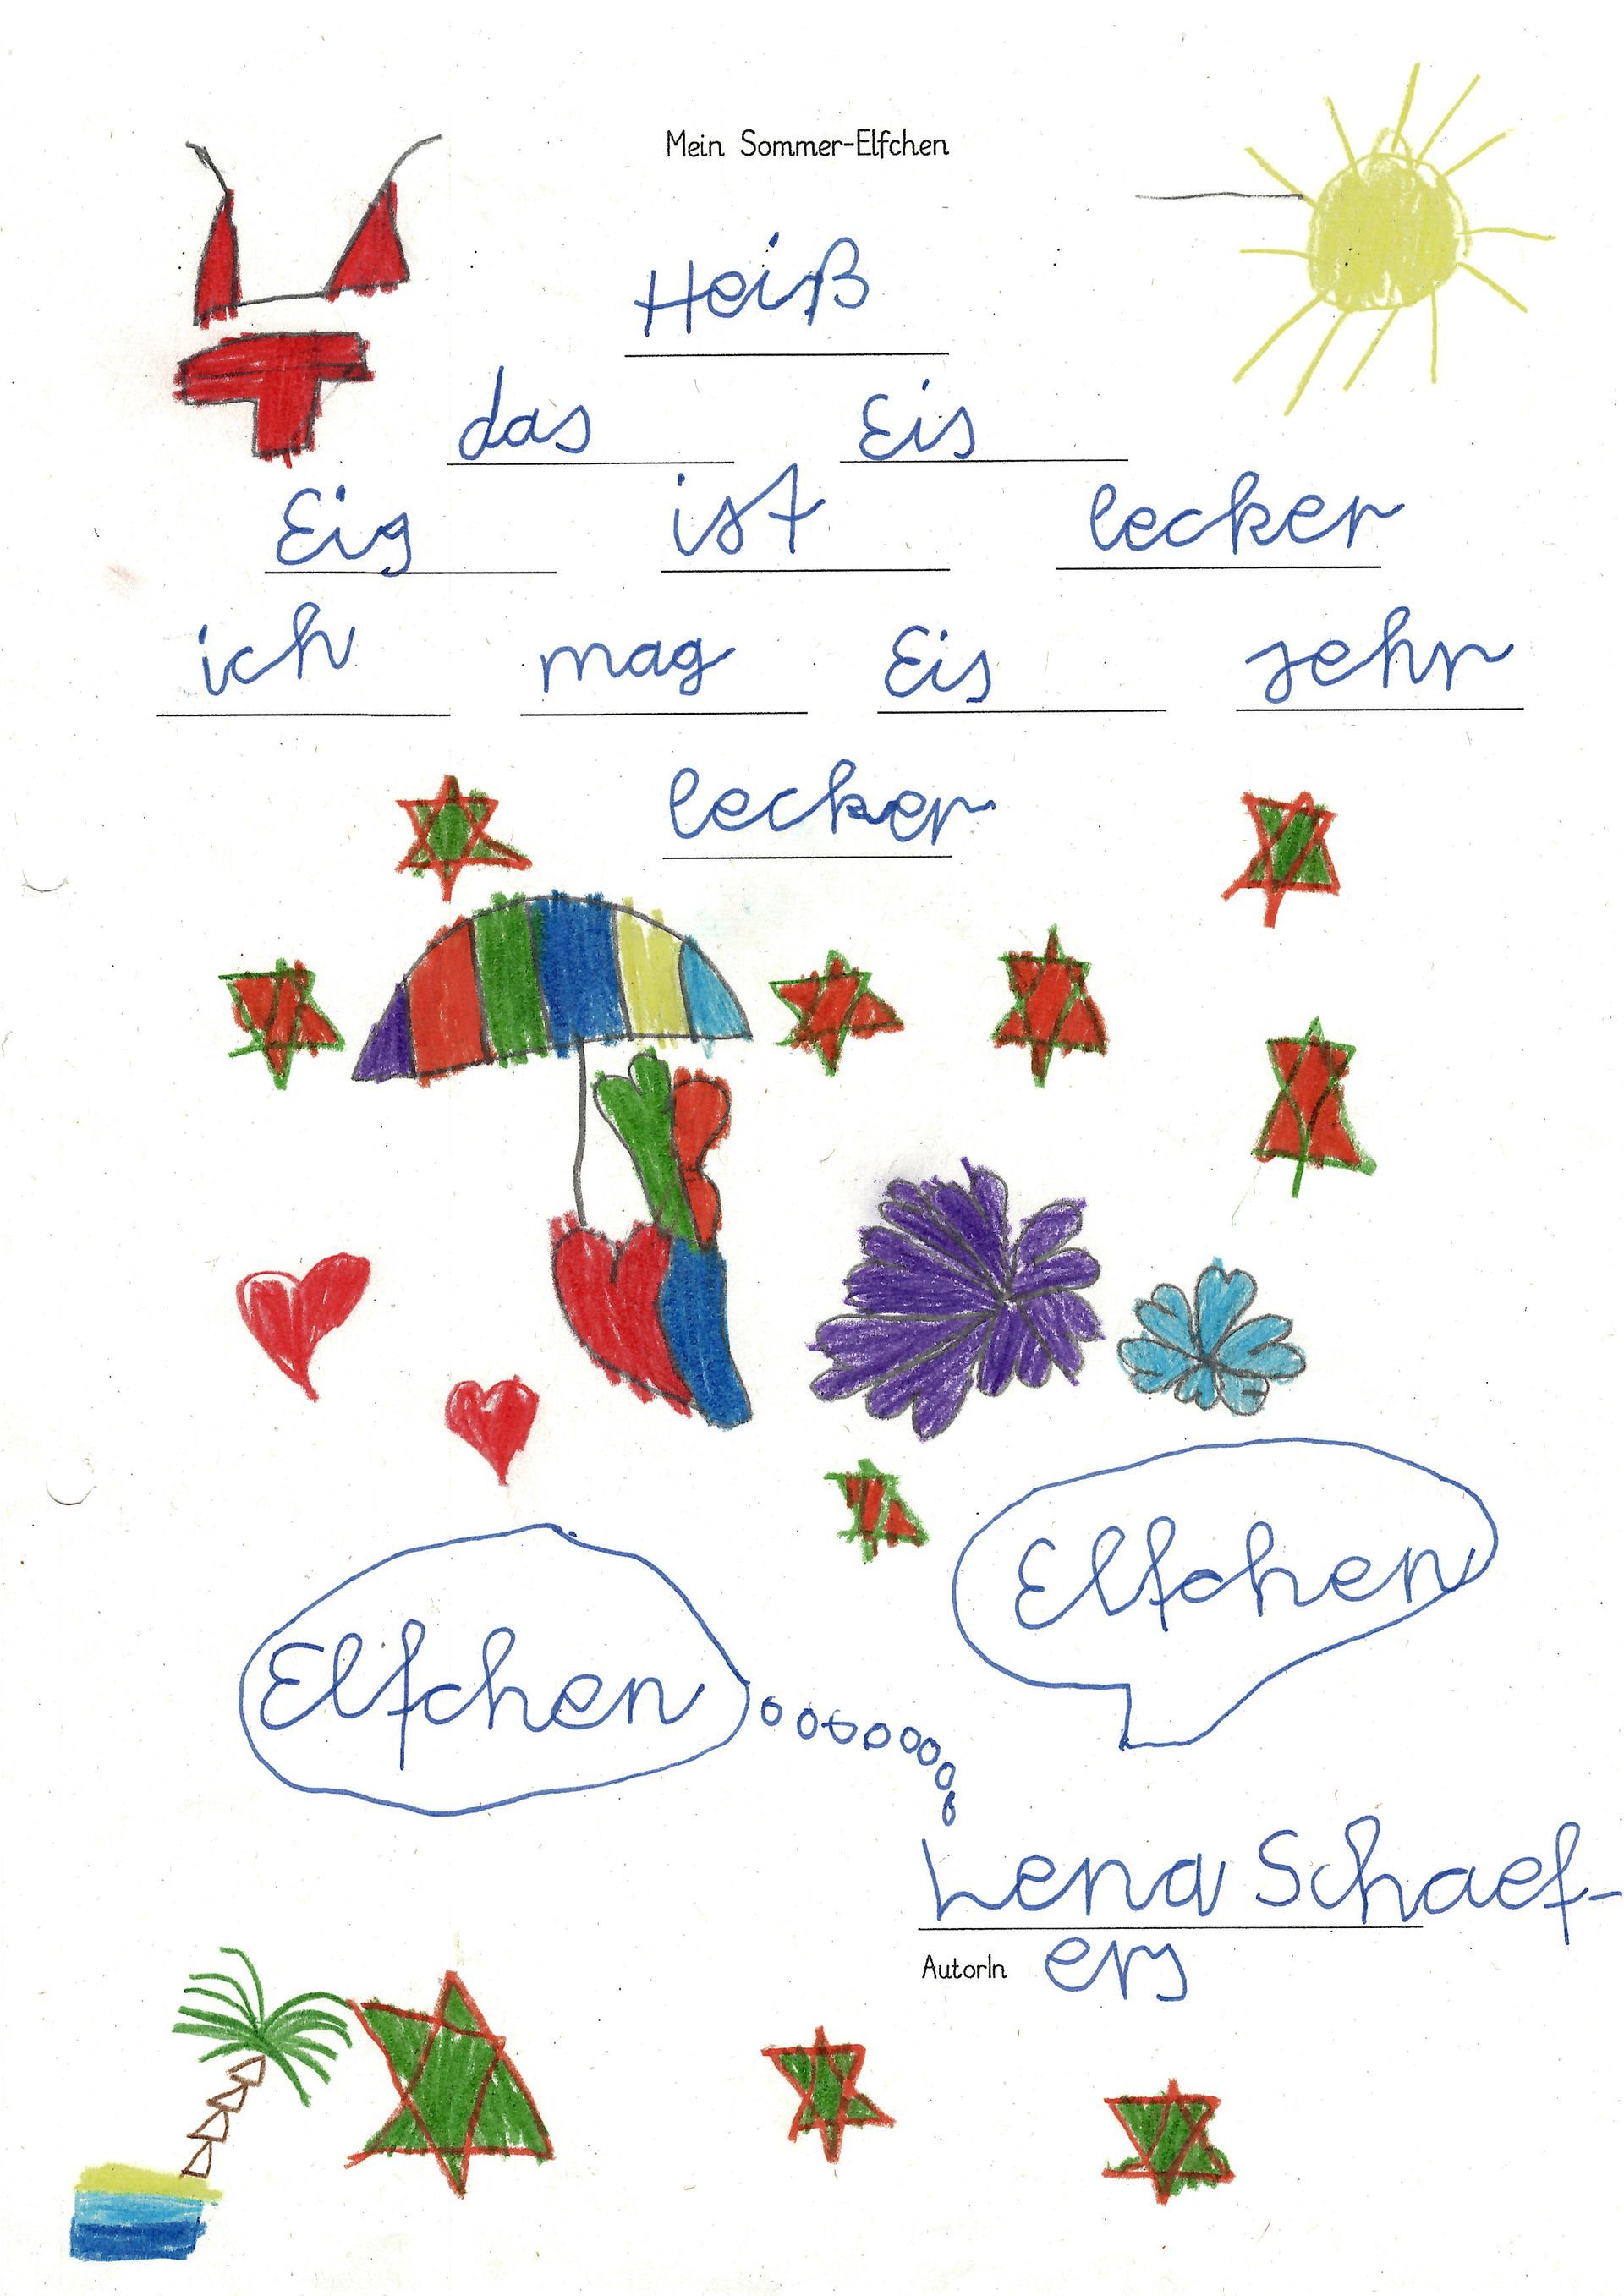 Mein Sommer-Elfchen
Heiß
das Eis
Eis ist lecker
ich mag Eis sehr
lecker
Elfchen
Elfchen
Lena Schaef-
AutorIn ers